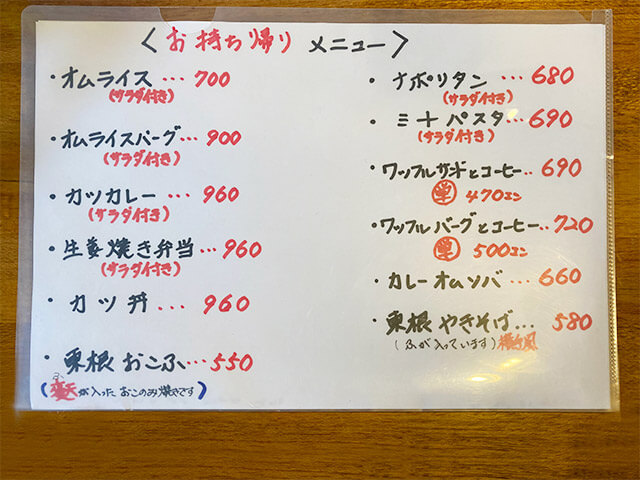 <お持ち帰り メニュー>
・オムライス・・・700
(サラダ付き)
・オムライスバーグ・・・900
(サラダ付き)
・カツカレー・・・960
(サラダ付き)
・生姜焼き弁当・・・960
(サラダ付き)
・カツ丼...960
・東根おこふ・・・550
(が入ったおこのみ焼きです)
・ナポリタン・・・680
(サラダ付き)
・ミートパスタ・・・690
(サラダ付き)
・ワッフルサンドとコーヒー..690
単 470エン
・ワッフルバーグとコーヒー..720
単 500エン
・カレーオムソバ・・・660
・東根やきそば...580
(ふが入っています)